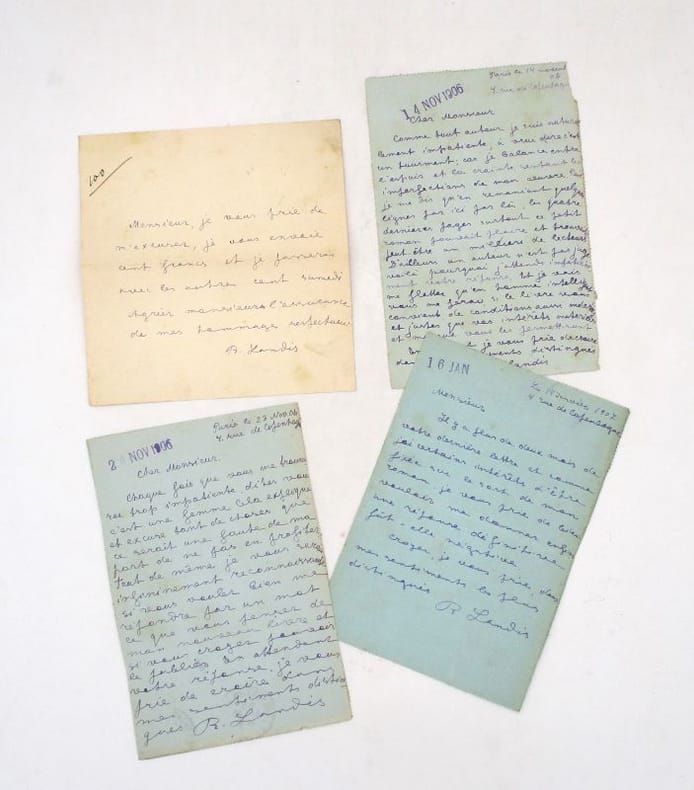 100
Monsieur, je vous prie de
m'excuser, je vous envoie
cent francs et je passerai
avec les autres cent samedi
Agréez monsieur l'assurance
de mes hommages respectueux
R. Landis
14 NOV 1906
Paris le 14 novemb
06
4 rue de Copenhague
Cher Monsieur
Comme tout auteur je suis natur
lement impatiente, à vrai dire c'est
un tourment; car je balance entre
l'espoir et la crainte, sentant les
imperfections de mon œuvre
je me dis qu'en remaniant quelq
lignes par ici par là, les quatre
dernières pages surtout ce petit
roman pourrait plaire et trouver
peut être un millier de lecteurs
D'ailleurs un auteur n'est pas juge
voilà pourquoi j'attends
votre réponse. Et je vais
me flatter qu'en homme intelligent
vous me ferez, si le livre vous
convient de conditions aussi
et justes que vos intérêts matériels
et vous les permettront
je vous prie de croire
sentiments distingués
Landis
2 NOV 1906
Paris le 27 Nov. 06
4. rue de Copenhag
Cher Monsieur.
Chaque fois que vous me trouve
rez trop impatiente, dites vous
c'est une femme. Cela explique
et excuse tant de choses que
ce serait une faute de ma
part de ne pas en profiter
Tout de même je vous serai
infiniment reconnaissante
si vous voulez bien me
répondre par un mot
ce que vous pensez de
mon nouveau livre et
si vous croyez pouvoir
le publier. En attendant
votre réponse, je vous
prie de croire dans
mes sentiments distin
gués R. Landis
16 JAN
Le 14 janvier 1907
4 rue de Copenhague
Monsieur
Il y a plus de deux mois de
votre dernière lettre et comme
j'ai certains intérêts d'être
fixée sur le sort de mon
roman, je vous prie de bien
vouloir me donner enfin
une réponse définitive
fût-elle négative.
Croyez, je vous prie, dans
mes sentiments les plus
distingués R. Landis